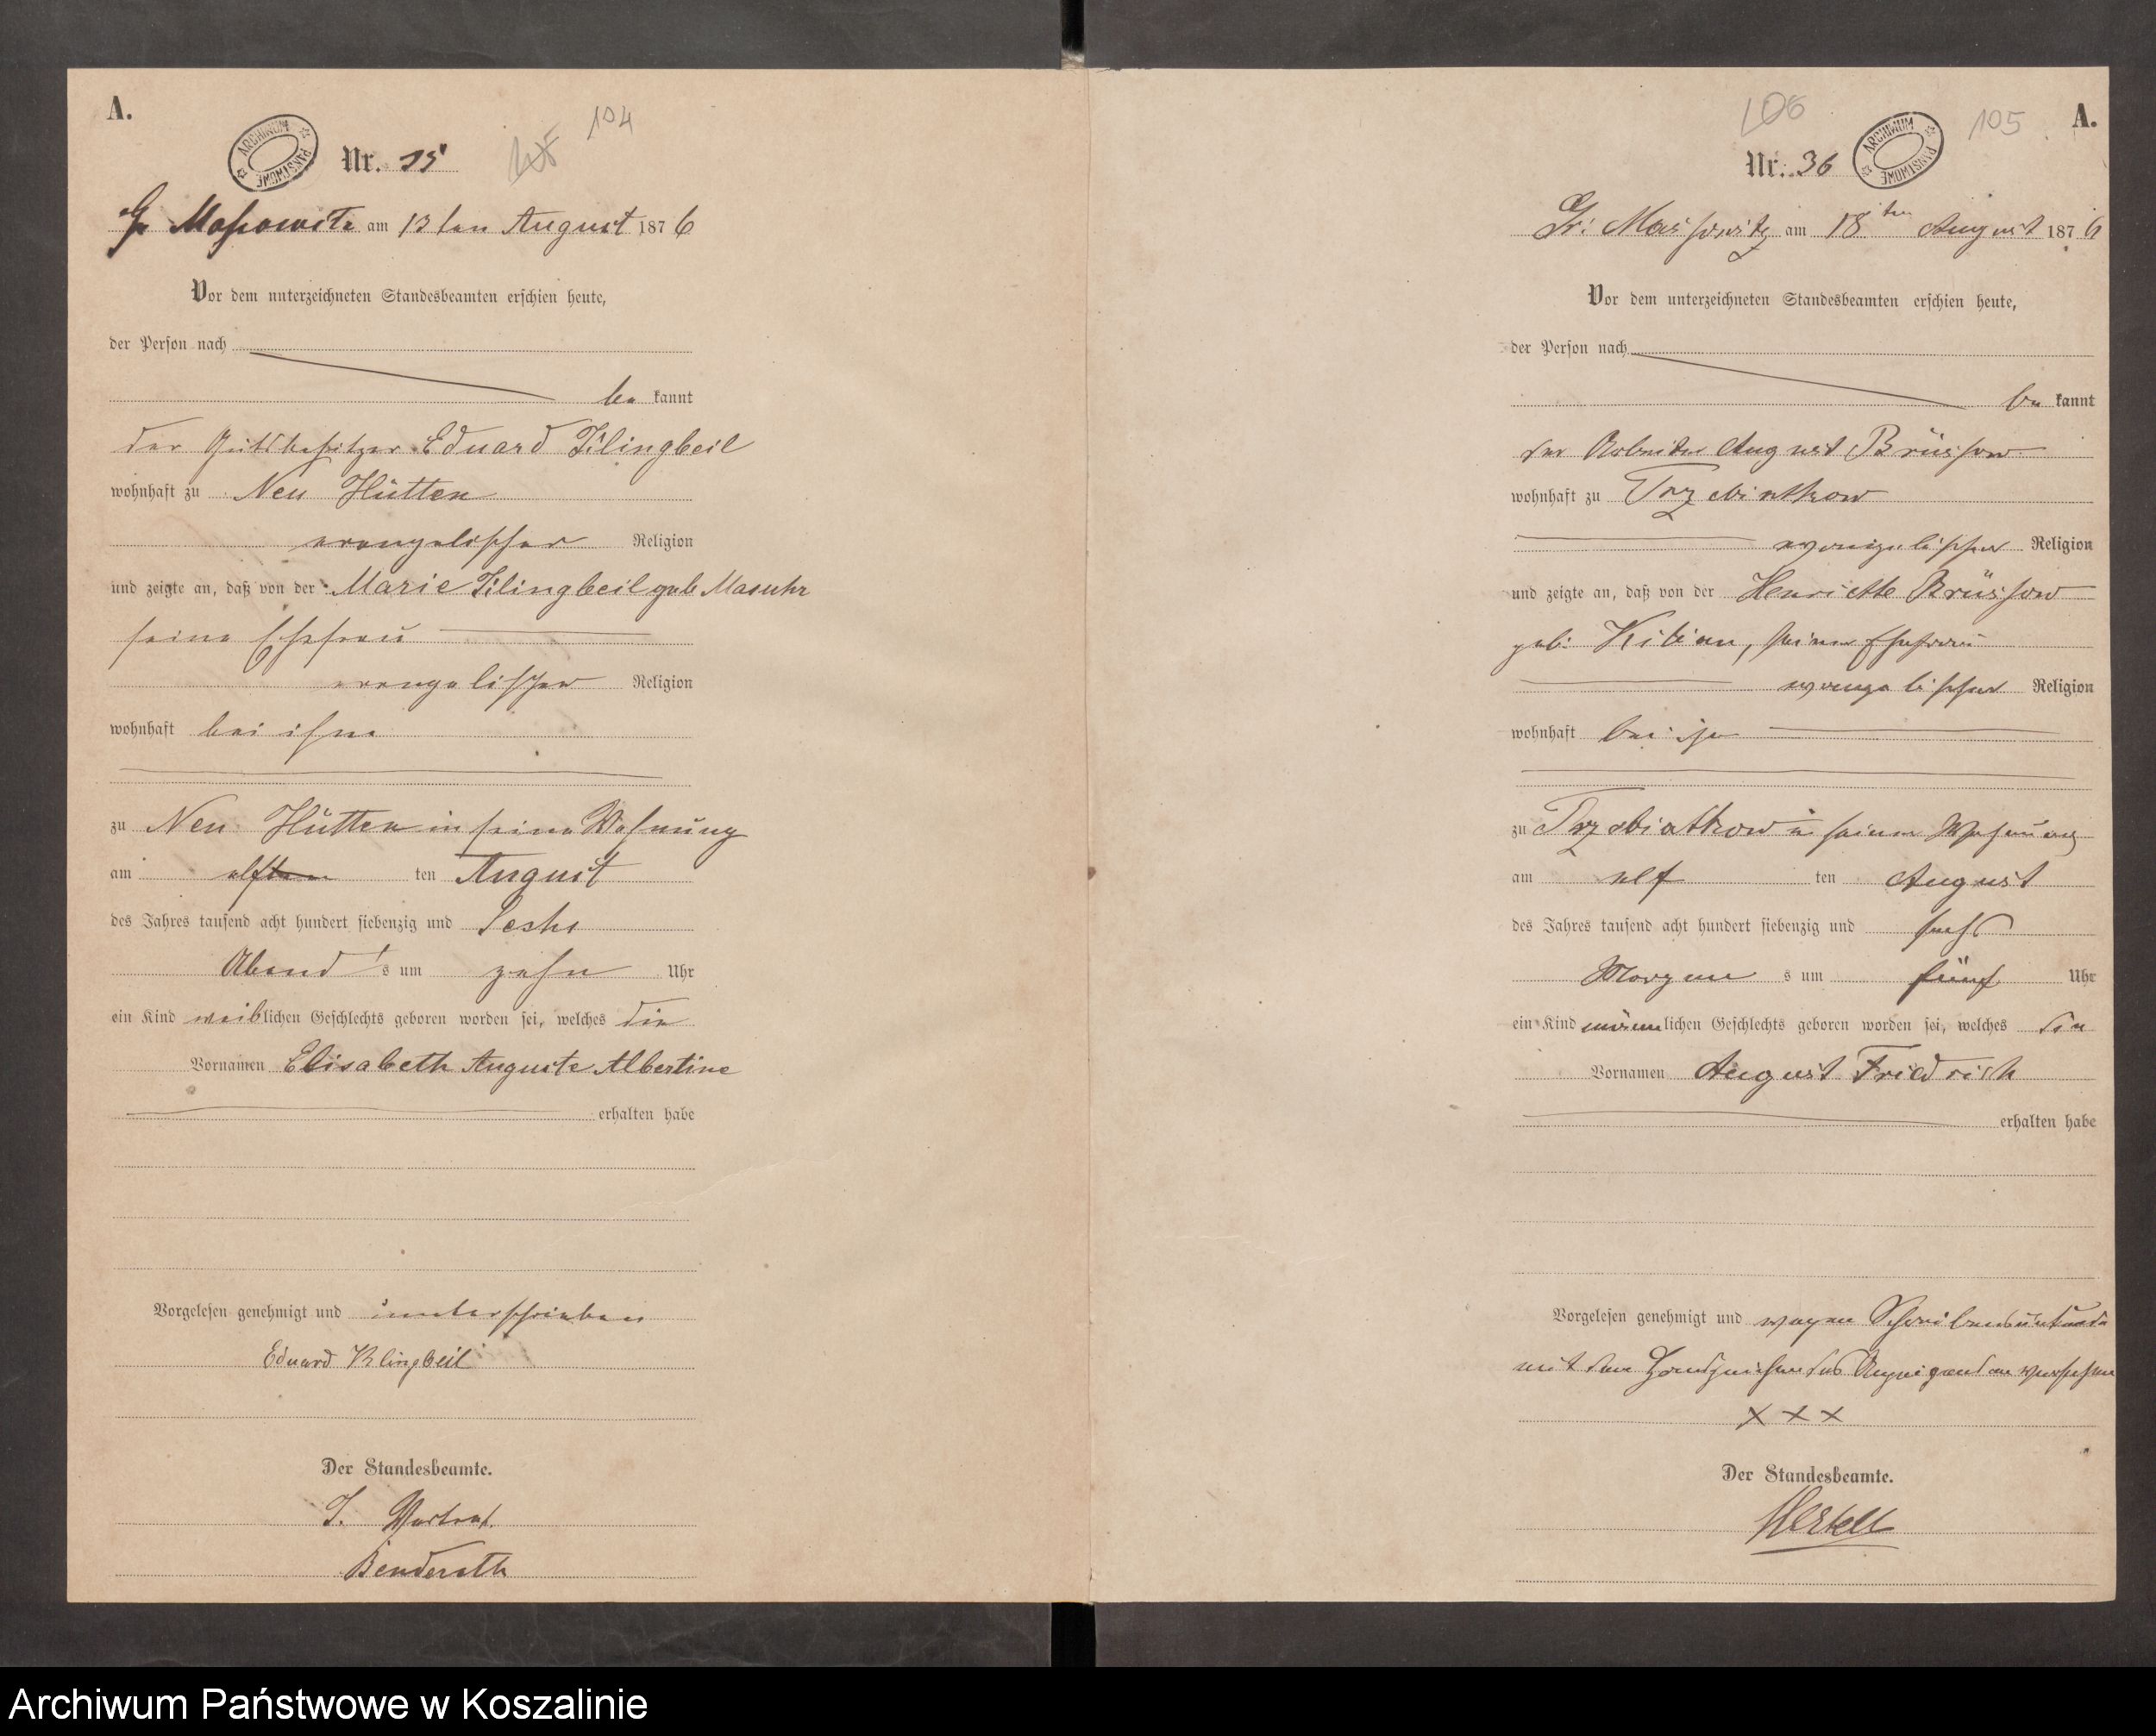 A.
ARCHIWUM PAŃSTWOWE
104
Nr. 35
Gr Massowitz am 13 ten August 1876
Vor dem unterzeichneten Standesbeamten erschien heute,
der Person nach
be kannt
der Gutsbesitzer Eduard Klingbeil
wohnhaft zu Neu Hütten
evangelischer Religion
und zeigte an, daß von der Marie Klingbeil geb Masuhr
seine Ehefrau
evangelischer Religion
wohnhaft bei ihm
zu Neu Hütten in seine Wohnung
am elften ten August
des Jahres tausend acht hundert siebenzig und Sechs
Abend s um zehn Uhr
ein Kind weiblichen Geschlechts geboren worden sei, welches die
Vornamen Elisabeth Auguste Albertine
erhalten habe
Vorgelesen genehmigt und unterschrieben
Eduard Klingbeil
Der Standesbeamte.
Benderoth
106
105
A.
ARCHIWUM PAŃSTWOWE
Nr. 36
Gr: Massowitz am 18ten August 1876
Vor dem unterzeichneten Standesbeamten erschien heute,
der Person nach
be kannt
der Arbeiter August Brüssow
wohnhaft zu Trzebiatkow
evangelischer Religion
und zeigte an, daß von der Henriette Brüssow
geb: Kilian, seiner Ehefrau
evangelischer Religion
wohnhaft bei
zu Trzebiatkow in seiner Wohnung
am elf ten August
des Jahres tausend acht hundert siebenzig und sechs
Morgen s um fünf Uhr
ein Kind männlichen Geschlechts geboren worden sei, welches die
Vornamen August Friedrich
erhalten habe
Vorgelesen genehmigt und wegen Schreibensunkunde
mit dem Handzeichen des Anzeigenden versehen
XXX
Der Standesbeamte.
Hertell
Archiwum Państwowe w Koszalinie